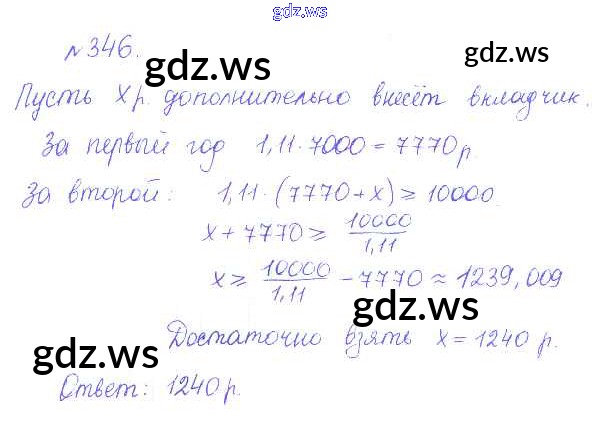 gdz.ws
№346.
gdz.ws
gdz.ws
Пусть х р. дополнительно внесёт вкладчик.
За первый год 1,11·7000=7770р.
За второй: 1,11·(7770+х)≥10000.
х+7770≥ 10000/1,11
х≥ 10000/1,11 -7770≈1239,009
gdz.ws
Достаточно взять х=1240 р.
gdz.ws
Ответ: 1240р.